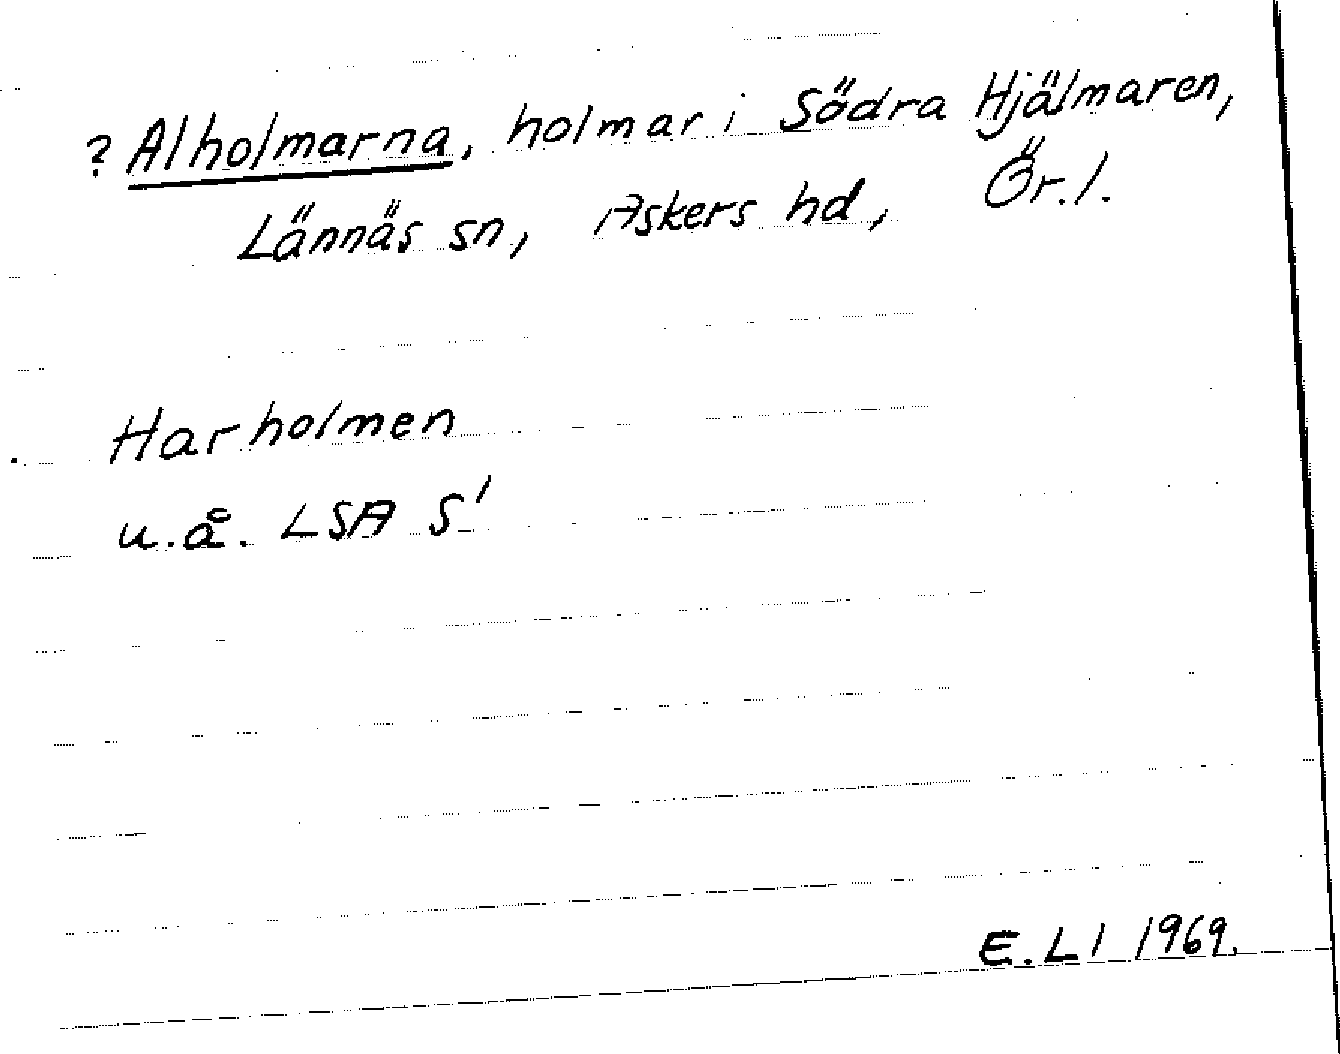 ? Alholmarna, holmar i Södra Hjälmaren,
Lännäs sn, Askers hd, Ör. l.
Harholmen
u.å. LSA S'
E. L I 1969.